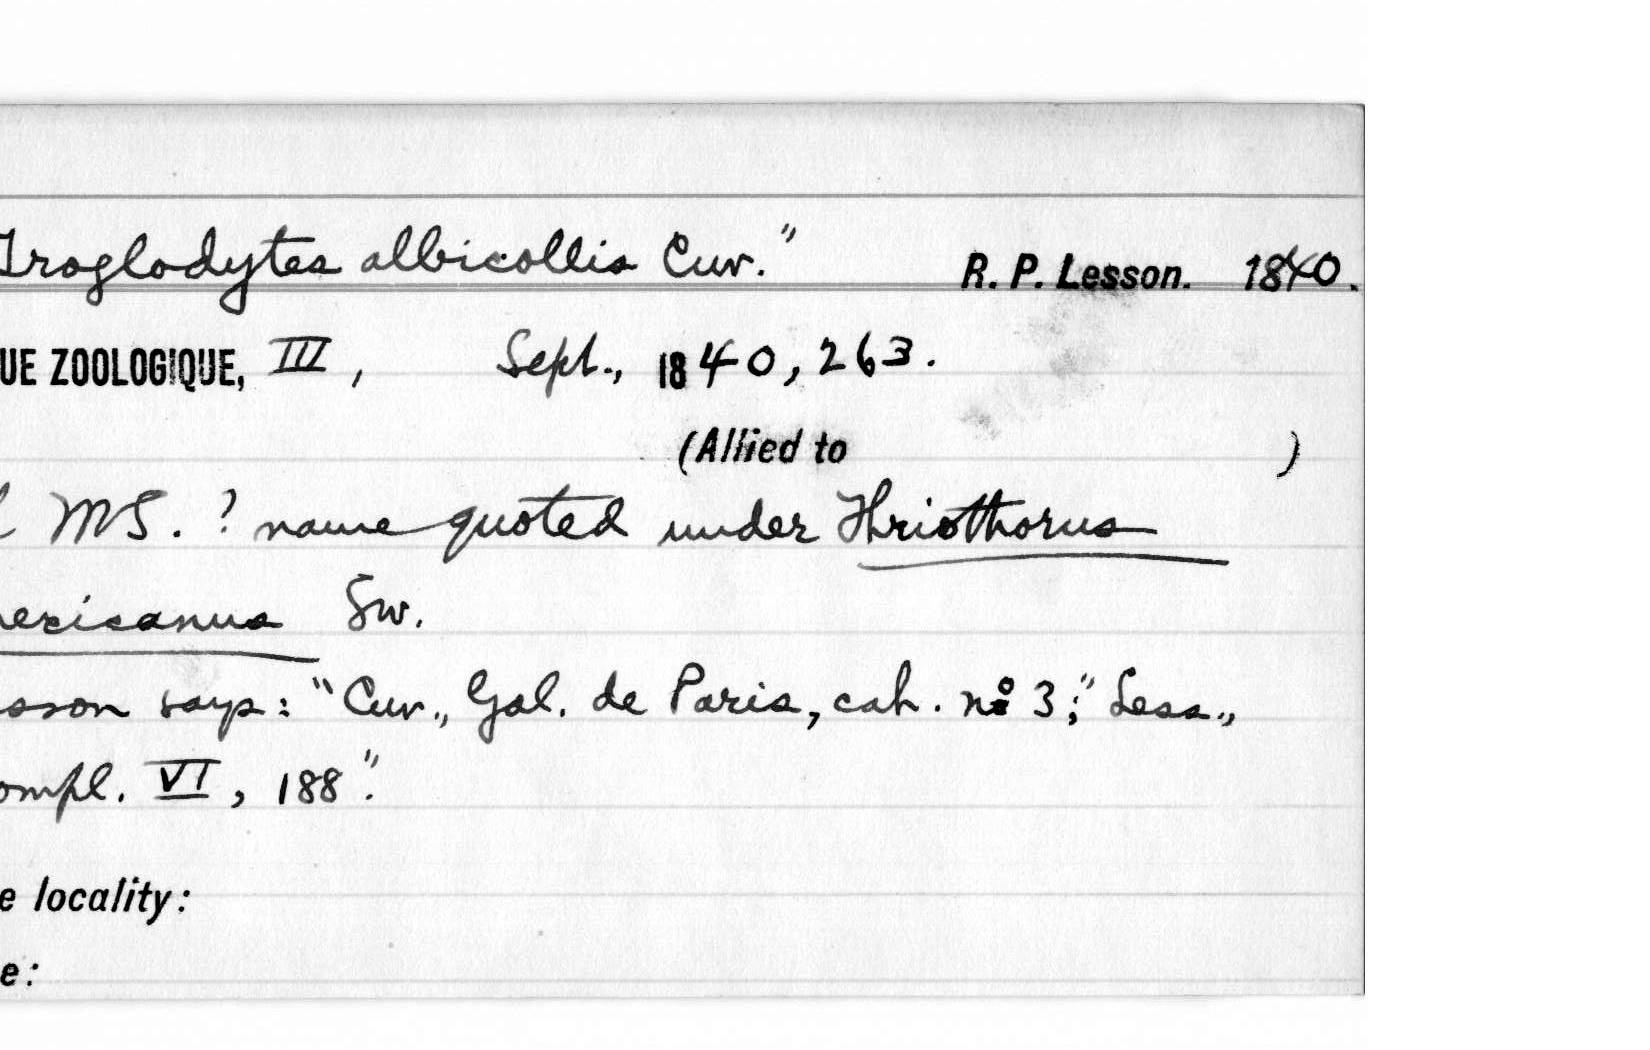 Troglodytes albicollis Cuv." R. P. Lesson. 1840.
UE ZOOLOGIQUE, III, Sept., 1840, 263.
(Allied to )
MS. ? name quoted under Thriothorus
mexicanus Sw.
sson says: "Cuv., Gal. de Paris, cah. no 3;" Less.,
ompl. VI, 188".
e locality:
e: